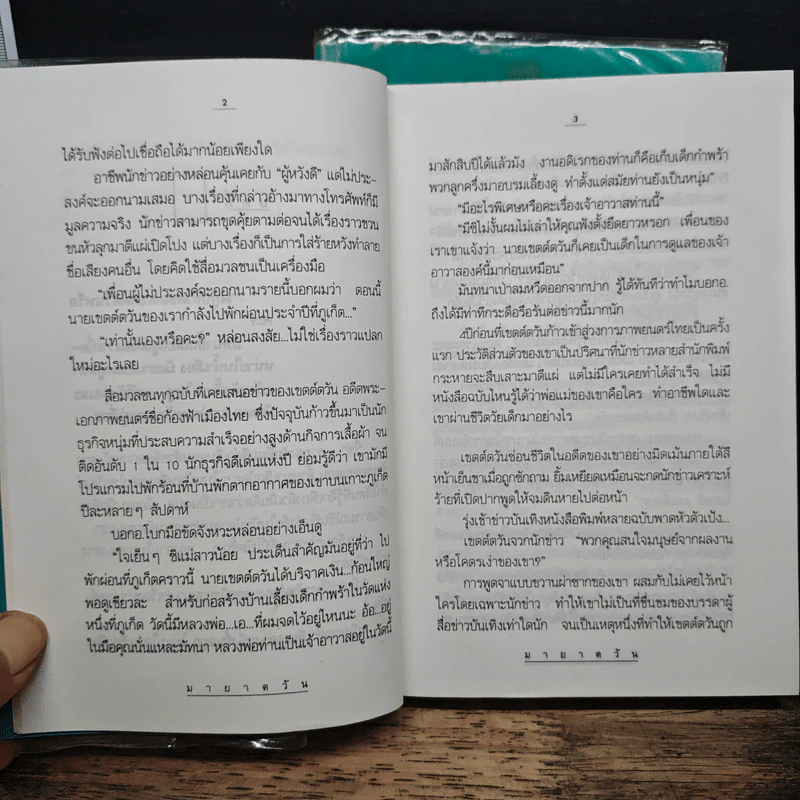 2
ได้รับฟังต่อไปเชื่อถือได้มากน้อยเพียงใด
อาชีพนักข่าวอย่างหล่อนคุ้นเคยกับ "ผู้หวังดี" แต่ไม่ประ-
สงค์จะออกนามเสมอ บางเรื่องที่กล่าวอ้างมาทางโทรศัพท์ก็มี
มูลความจริง นักข่าวสามารถขุดคุ้ยตามต่อจนได้เรื่องราวชวน
ขนหัวลุกมาตีแผ่เปิดโปง แต่บางเรื่องก็เป็นการใส่ร้ายหวังทำลาย
ชื่อเสียงคนอื่น โดยคิดใช้สื่อมวลชนเป็นเครื่องมือ
"เพื่อนผู้ไม่ประสงค์จะออกนามรายนี้บอกผมว่า ตอนนี้
นายเขตต์ตวันของเรากำลังไปพักผ่อนประจำปีที่ภูเก็ต..."
"เท่านั้นเองหรือคะ?" หล่อนสงสัย...ไม่ใช่เรื่องราวแปลก
ใหม่อะไรเลย
สื่อมวลชนทุกฉบับที่เคยเสนอข่าวของเขตต์ตวัน อดีตพระ-
เอกภาพยนตร์ชื่อก้องฟ้าเมืองไทย ซึ่งปัจจุบันก้าวขึ้นมาเป็นนัก
ธุรกิจหนุ่มที่ประสบความสำเร็จอย่างสูงด้านกิจการเสื้อผ้า จน
ติดอันดับ 1 ใน 10 นักธุรกิจดีเด่นแห่งปี ย่อมรู้ดีว่า เขามักมี
โปรแกรมไปพักร้อนที่บ้านพักตากอากาศของเขาบนเกาะภูเก็ต
ปีละหลายๆ สัปดาห์
บอกอ.โบกมือขัดจังหวะหล่อนอย่างเอ็นดู
"ใจเย็นๆ ซิแม่สาวน้อย ประเด็นสำคัญมันอยู่ที่ว่า ไป
พักผ่อนที่ภูเก็ตคราวนี้ นายเขตต์ตวันได้บริจาคเงิน...ก้อนใหญ่
พอดูเชียวละ สำหรับก่อสร้างบ้านเลี้ยงเด็กกำพร้าในวัดแห่ง
หนึ่งที่ภูเก็ต วัดนี้มีหลวงพ่อ...เอ...ที่ผมจดไว้อยู่ไหนนะ อ้อ...อยู่
ในมือคุณนั่นแหละมัทนา หลวงพ่อท่านเป็นเจ้าอาวาสอยู่ในวัดนี้
มายาตวัน
3
มาสักสิบปีได้แล้วมัง งานอดิเรกของท่านก็คือเก็บเด็กกำพร้า
พวกลูกครึ่งมาอบรมเลี้ยงดู ทำตั้งแต่สมัยท่านยังเป็นหนุ่ม"
"มีอะไรพิเศษหรือคะเรื่องเจ้าอาวาสท่านนี้"
"มีซิไม่งั้นผมไม่เล่าให้คุณฟังตั้งยืดยาวหรอก เพื่อนของ
เราเขาแจ้งว่า นายเขตต์ตวันก็เคยเป็นเด็กในการดูแลของเจ้า
อาวาสองค์นี้มาก่อนเหมือน"
มันทนาเป่าลมหวืดออกจากปาก รู้ได้ทันทีว่าทำไมบอกอ.
ถึงได้มีท่าทีกระดือรือร้นต่อข่าวนี้มากนัก
4ปีก่อนที่เขตต์ตวันก้าวเข้าสู่วงการภาพยนตร์ไทยเป็นครั้ง
แรก ประวัติส่วนตัวของเขาเป็นปริศนาที่นักข่าวหลายสำนักพิมพ์
กระหายจะสืบเสาะมาตีแผ่ แต่ไม่มีใครเคยทำได้สำเร็จ ไม่มี
หนังสือฉบับไหนรู้ได้ว่าพ่อแม่ของเขาคือใคร ทำอาชีพใดและ
เขาผ่านชีวิตวัยเด็กมาอย่างไร
เขตต์ตวันซ่อนชีวิตในอดีตของเขาอย่างมิดเม้นภายใต้สี
หน้าเย็นชาเมื่อถูกซักถาม ยิ้มเหยียดเหมือนจะกดนักข่าวเคราะห์
ร้ายที่เปิดปากพูดให้จมดินหายไปต่อหน้า
รุ่งเช้าข่าวบันเทิงหนังสือพิมพ์หลายฉบับพาดหัวตัวเป้ง...
เขตต์ตวันจวกนักข่าว "พวกคุณสนใจมนุษย์จากผลงาน
หรือโคตรเง่าของเขา?"
การพูดจาแบบขวานผ่าซากของเขา ผสมกับไม่เคยไว้หน้า
ใครโดยเฉพาะนักข่าว ทำให้เขาไม่เป็นที่ชื่นชมของบรรดาผู้
สื่อข่าวบันเทิงเท่าใดนัก จนเป็นเหตุหนึ่งที่ทำให้เขตต์ตวันถูก
มายาตวัน